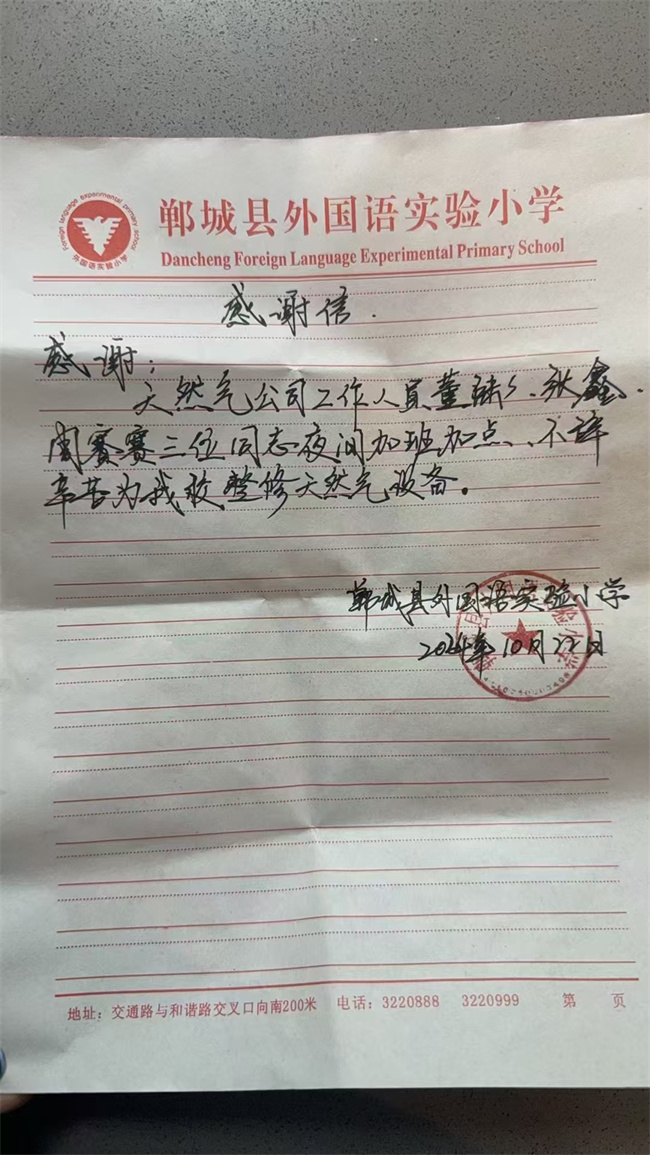 郸城县外国语实验小学
Dancheng Foreign Language Experimental Primary School
感谢信.
感谢:
天然气公司工作人员董 、张鑫、
闫赛赛三位同志夜间加班加点、不辞
辛苦为我校整修天然气设备。
郸城县外国语实验小学
2024年10月22日
地址: 交通路与和谐路交叉口向南200米 电话: 3220888 3220999 第 页